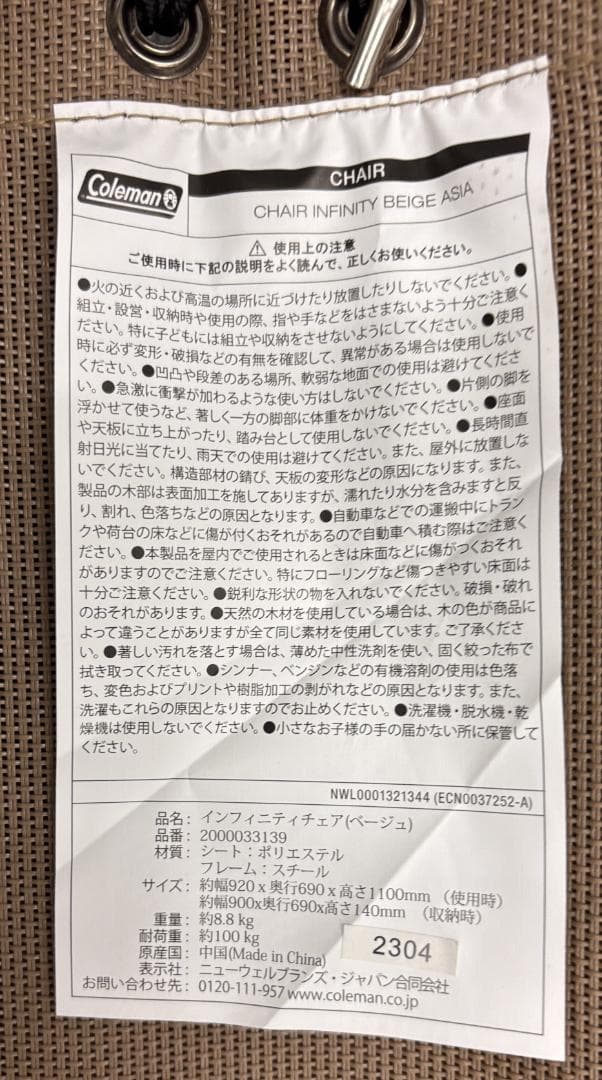 Coleman
CHAIR
CHAIR INFINITY BEIGE ASIA
⚠ 使用上の注意
ご使用時に下記の説明をよく読んで、正しくお使いください。
●火の近くおよび高温の場所に近づけたり放置したりしないでください。●
組立・設営・収納時や使用の際、指や手などをはさまないよう十分ご注意く
ださい。特に子どもには組立や収納をさせないようにしてください。●使用
時に必ず変形・破損などの有無を確認して、異常がある場合は使用しないで
ください。●凹凸や段差のある場所、軟弱な地面での使用は避けてくださ
い。●急激に衝撃が加わるような使い方はしないでください。●片側の脚を
浮かせて使うなど、著しく一方の脚部に体重をかけないでください。●座面
や天板に立ち上がったり、踏み台として使用しないでください。●長時間直
射日光に当てたり、雨天での使用は避けてください。また、屋外に放置しな
いでください。構造部材の錆び、天板の変形などの原因になります。また、
製品の木部は表面加工を施してありますが、濡れたり水分を含みますと反
り、割れ、色落ちなどの原因となります。●自動車などでの運搬中にトラン
クや荷台の床などに傷が付くおそれがあるので自動車へ積む際はご注意く
ださい。●本製品を屋内でご使用されるときは床面などに傷がつくおそれ
がありますのでご注意ください。特にフローリングなど傷つきやすい床面は
十分ご注意ください。●鋭利な形状の物を入れないでください。破損・破れ
のおそれがあります。●天然の木材を使用している場合は、木の色が商品に
よって違うことがありますが全て同じ素材を使用しています。ご了承くださ
い。●著しい汚れを落とす場合は、薄めた中性洗剤を使い、固く絞った布で
拭き取ってください。●シンナー、ベンジンなどの有機溶剤の使用は色落
ち、変色およびプリントや樹脂加工の剥がれなどの原因となります。また、
洗濯もこれらの原因となりますのでお止めください。●洗濯機・脱水機・乾
燥機は使用しないでください。●小さなお子様の手の届かない所に保管して
ください。
NWL0001321344 (ECN0037252-A)
品名: インフィニティチェア(ベージュ)
品番: 2000033139
材質: シート:ポリエステル
フレーム:スチール
サイズ: 約幅920 x 奥行690 x 高さ1100mm (使用時)
約幅900x奥行690x高さ140mm (収納時)
重量: 約8.8 kg
耐荷重: 約100 kg
2304
原産国: 中国(Made in China)
表示社: ニューウェルブランズ・ジャパン合同会社
お問い合わせ先: 0120-111-957 www.coleman.co.jp